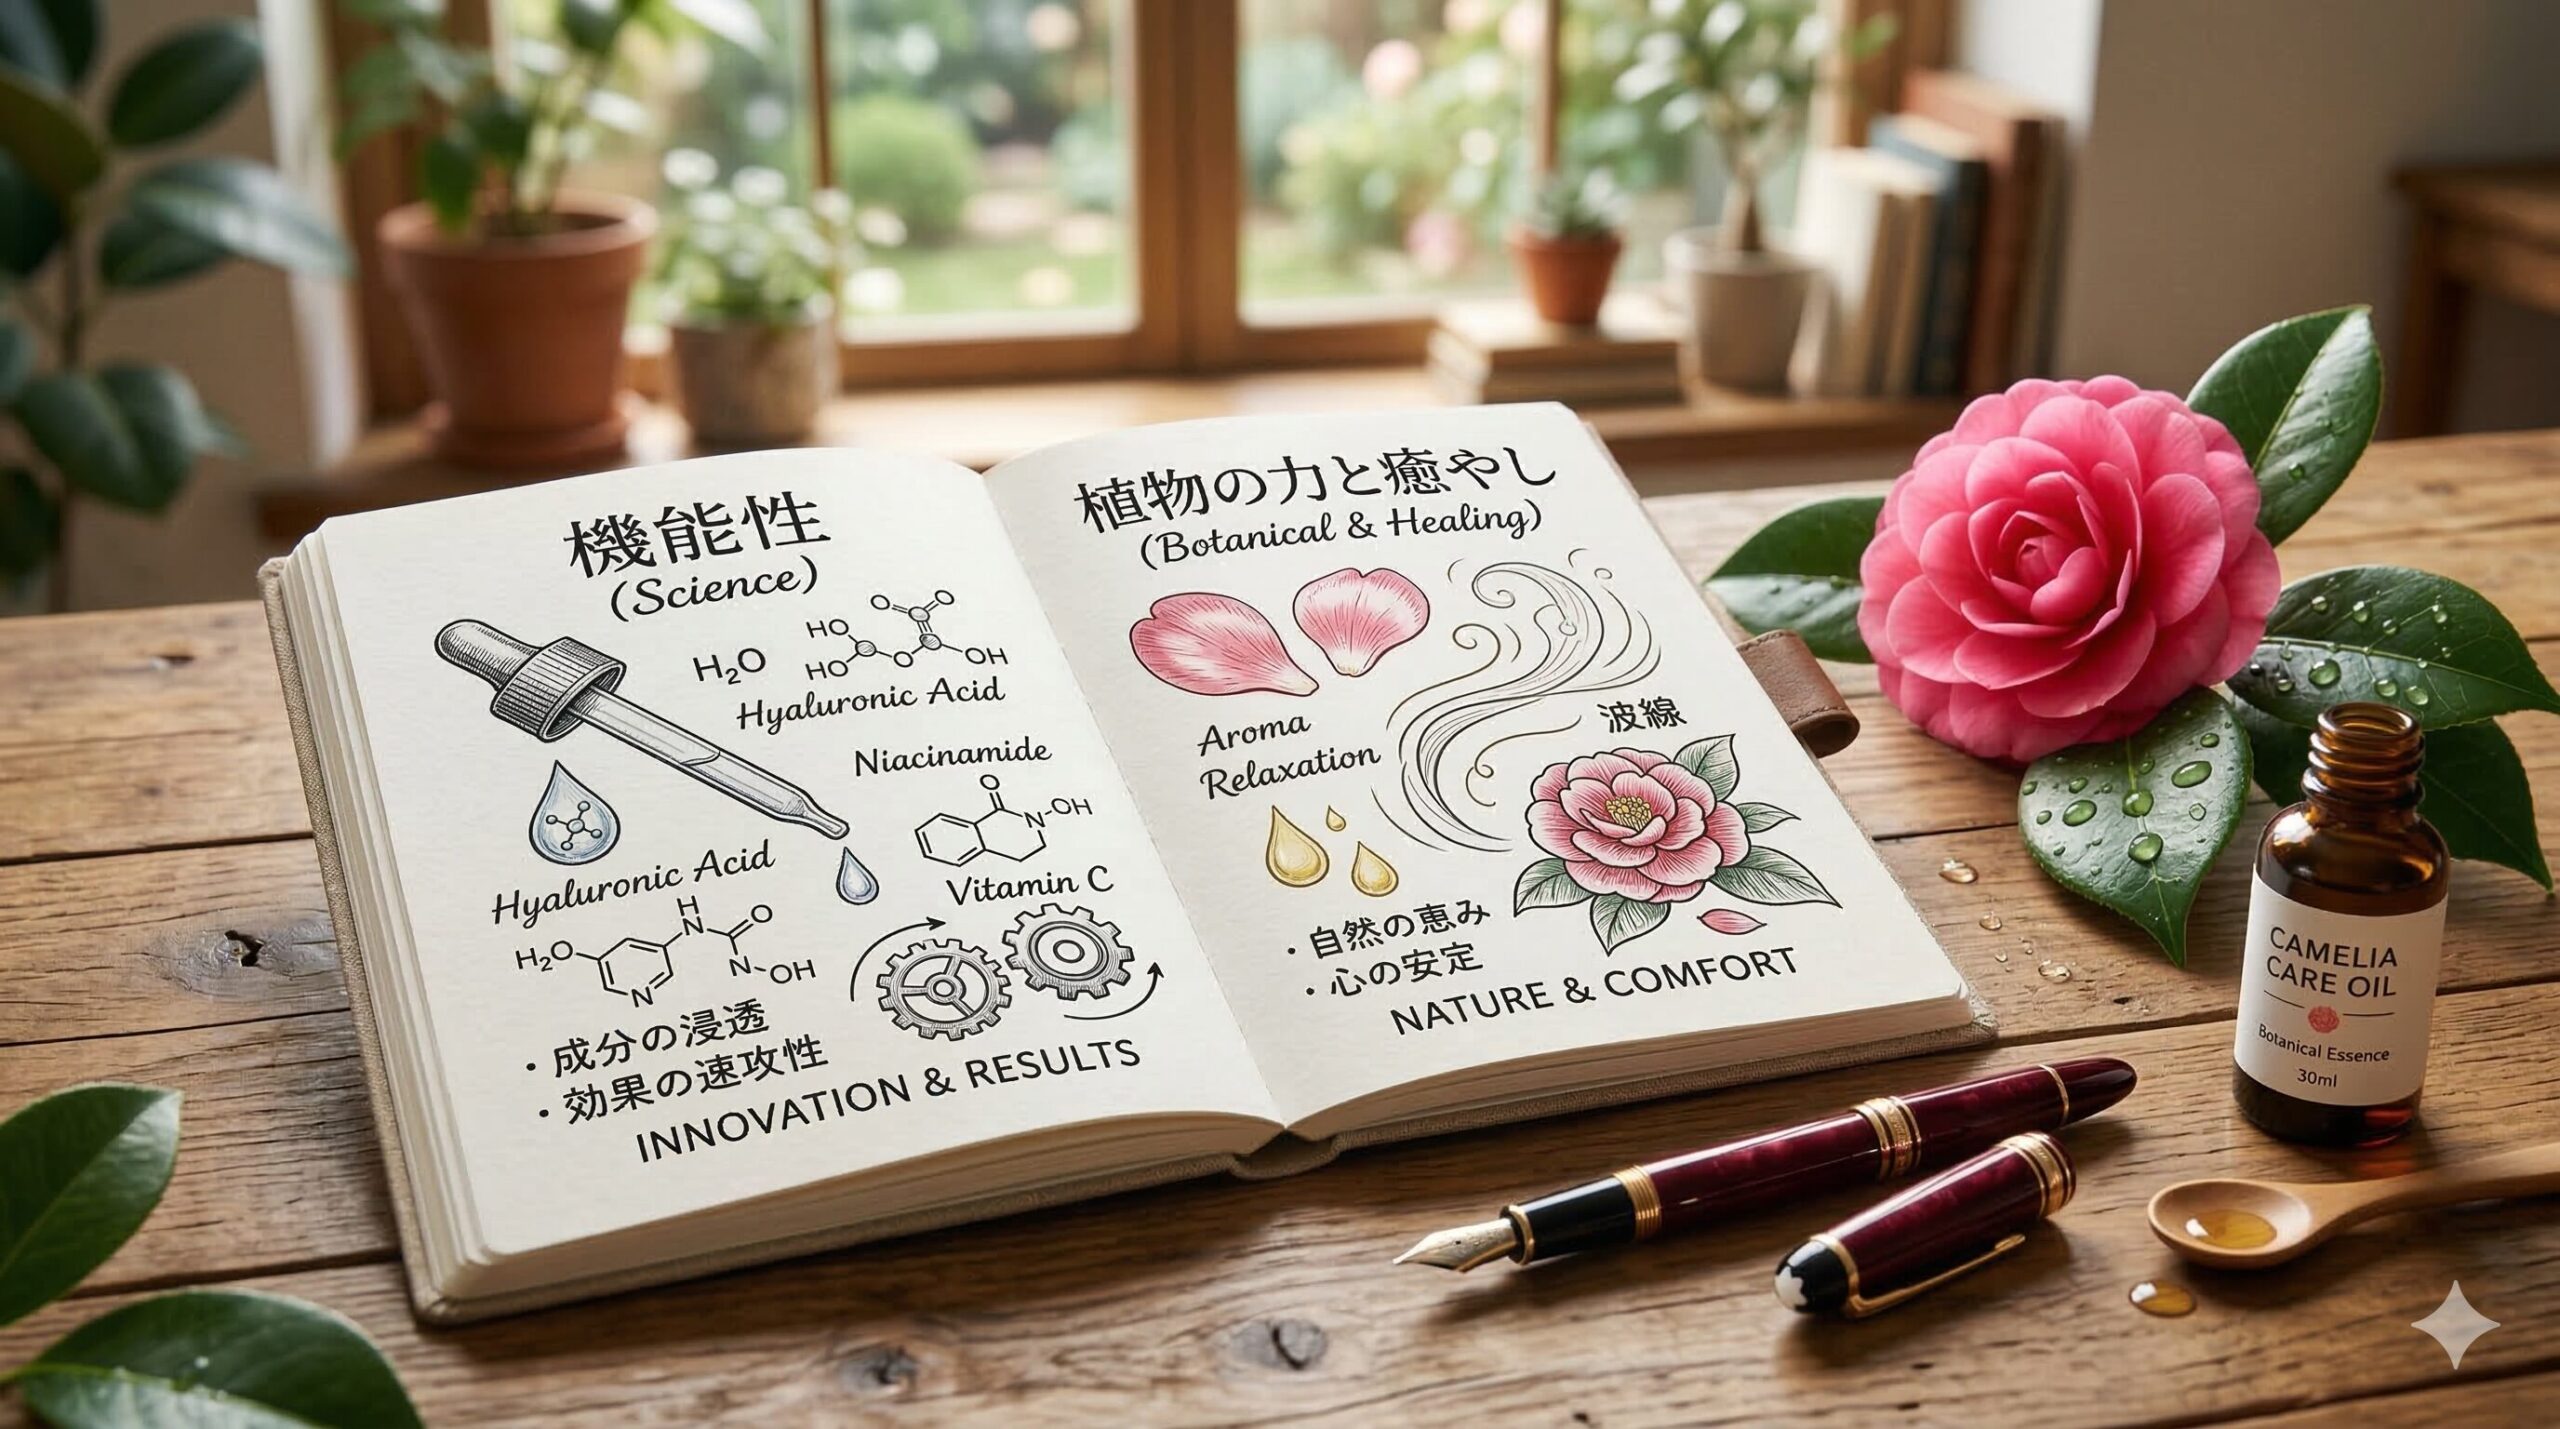 機能性
(Science)
H₂O
HO
HO
O
O
O
OH
Hyaluronic Acid
Niacinamide
O
N-OH
Vitamin C
Hyaluronic Acid
H₂O
H
N
O
N
N-OH
・成分の浸透
・効果の速攻性
INNOVATION & RESULTS
植物の力と癒やし
(Botanical & Healing)
Aroma
Relaxation
波線
・自然の恵み
・心の安定
NATURE & COMFORT
CAMELIA
CARE OIL
Botanical Essence
30ml